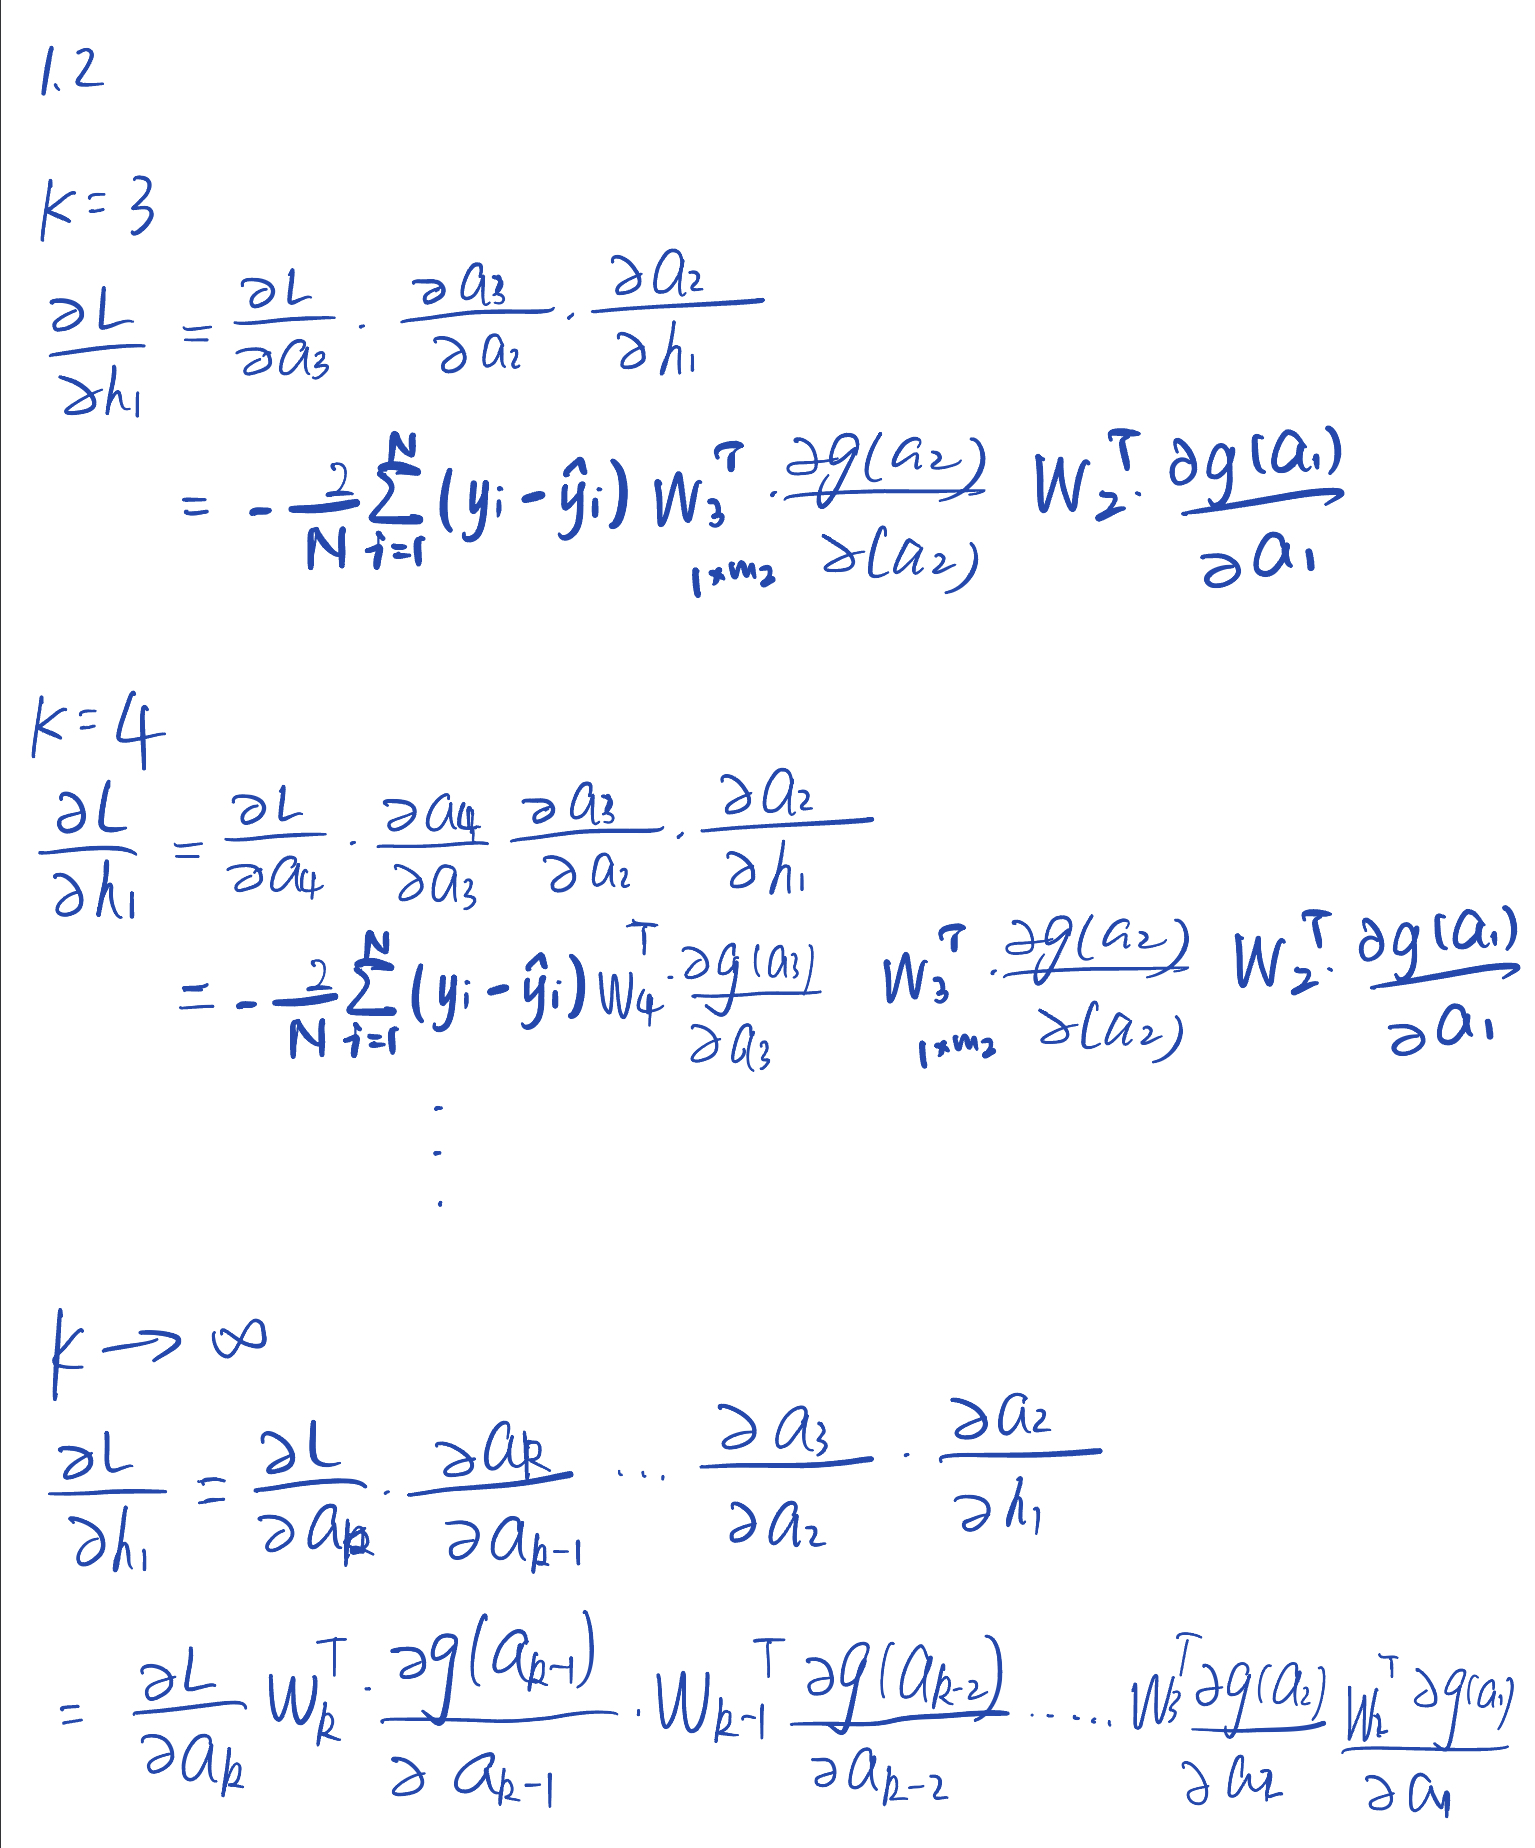 1.2
K=3
∂L/∂h₁ = ∂L/∂a₃ · ∂a₃/∂a₂ · ∂a₂/∂h₁
= - 2/N Σᵢ₌₁ᴺ (yᵢ - ŷᵢ) W₃ᵀ · ∂g(a₂)/∂(a₂) W₂ᵀ · ∂g(a₁)/∂a₁
1×m₂
K=4
∂L/∂h₁ = ∂L/∂a₄ · ∂a₄/∂a₃ ∂a₃/∂a₂ · ∂a₂/∂h₁
= - 2/N Σᵢ₌₁ᴺ (yᵢ - ŷᵢ) W₄ᵀ · ∂g(a₃)/∂a₃ W₃ᵀ · ∂g(a₂)/∂(a₂) W₂ᵀ · ∂g(a₁)/∂a₁
1×m₂
⋮
k → ∞
∂L/∂h₁ = ∂L/∂aₖ · ∂aₖ/∂aₖ₋₁ ... ∂a₃/∂a₂ · ∂a₂/∂h₁
= ∂L/∂aₖ Wₖᵀ · ∂g(aₖ₋₁)/∂aₖ₋₁ · Wₖ₋₁ᵀ ∂g(aₖ₋₂)/∂aₖ₋₂ ...... W₃ᵀ ∂g(a₂)/∂a₂ W₂ᵀ ∂g(a₁)/∂a₁